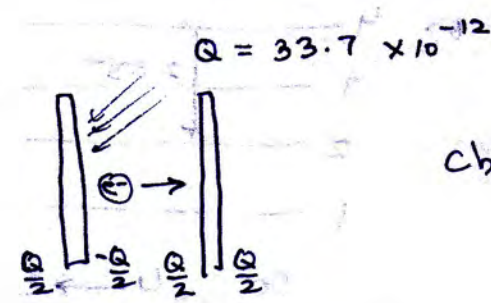 Q = 33.7 × 10⁻¹²
Cb
e⁻
Q/2 -Q/2 Q/2 Q/2